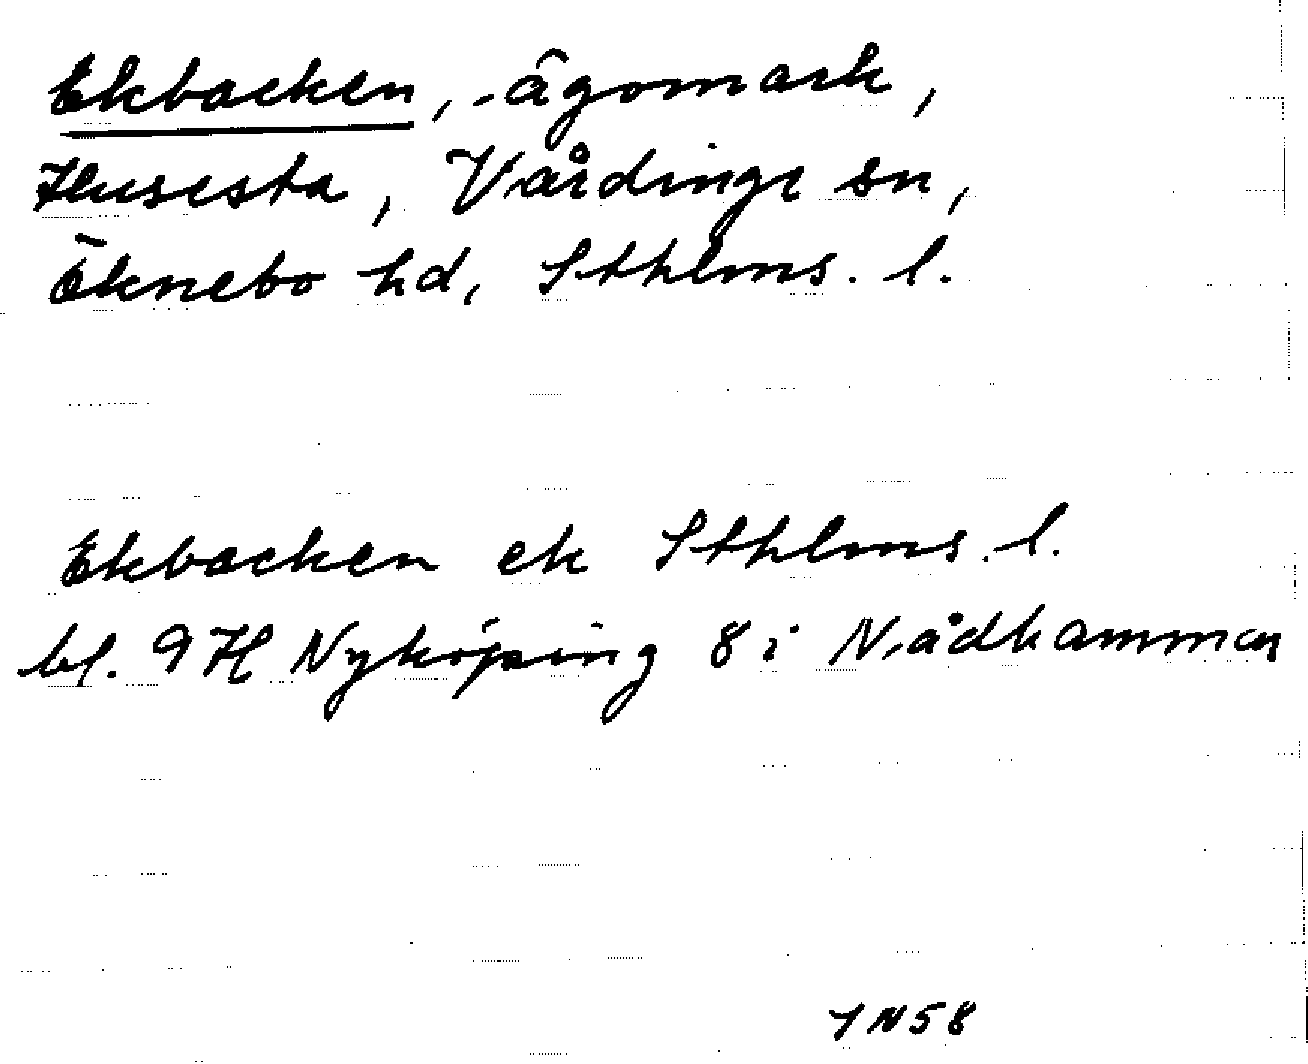 Ekbacken, ägomark,
Husesta, Vårdinge sn,
Öknebo hd, Sthlms. l.
Ekbacken ek Sthlms. l.
bl. 9H Nyköping 8i Nådhammar
IN58